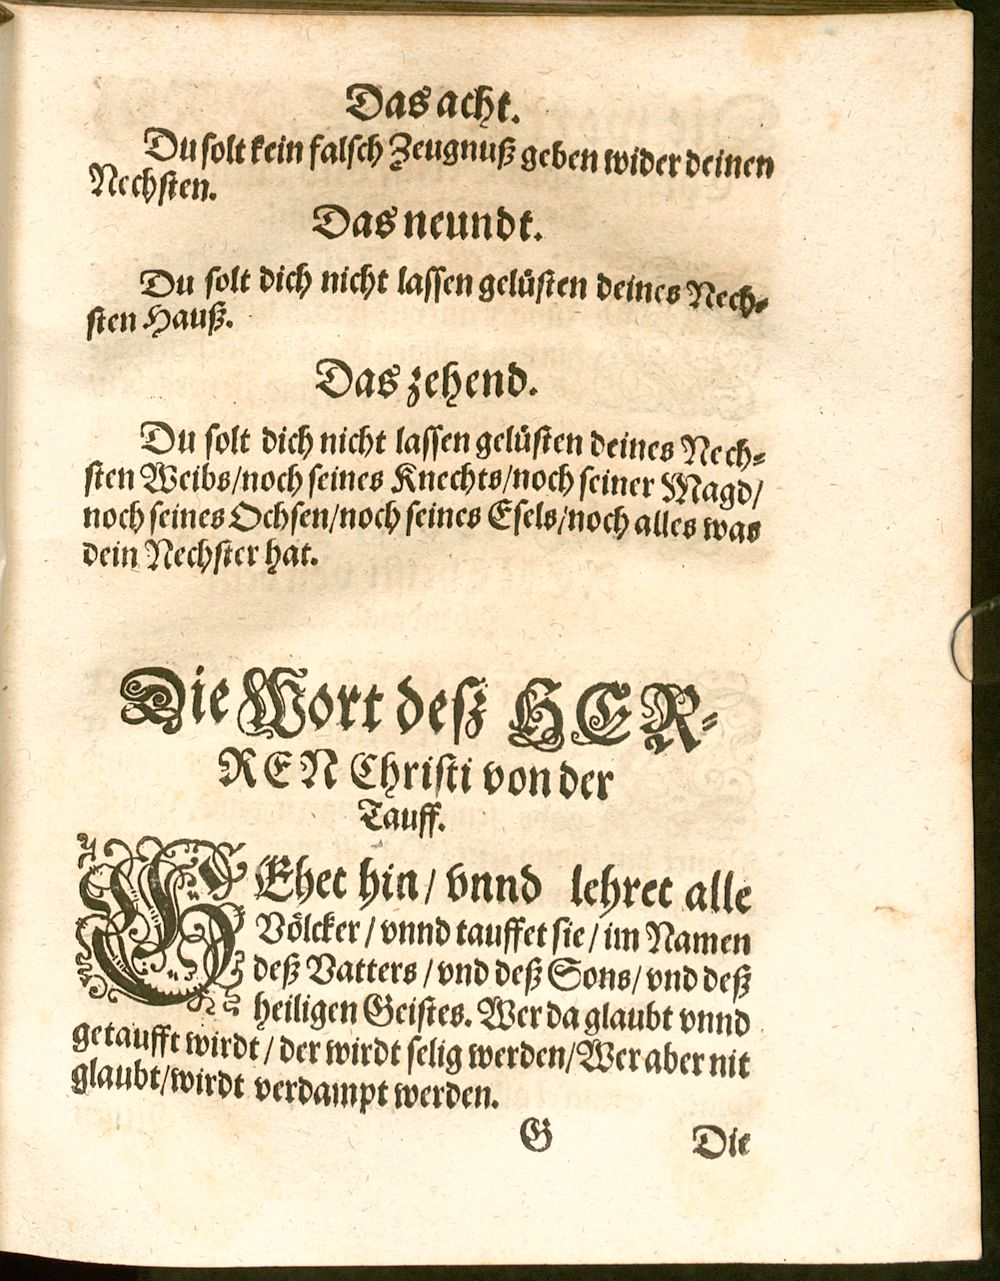 Das acht.
Du solt kein falsch Zeugnuß geben wider deinen
Nechsten.
Das neundt.
Du solt dich nicht lassen gelüsten deines Nech-
sten Hauß.
Das zehend.
Du solt dich nicht lassen gelüsten deines Nech-
sten Weibs/noch seines Knechts/noch seiner Magd/
noch seines Ochsen/noch seines Esels/noch alles was
dein Nechster hat.
Die Wort deß HER-
REN Christi von der
Tauff.
GEhet hin/ vnnd lehret alle
Völcker/ vnnd tauffet sie/ im Namen
deß Vatters/ vnd deß Sons/ vnd deß
heiligen Geistes. Wer da glaubt vnnd
getaufft wirdt/ der wirdt selig werden/Wer aber nit
glaubt/wirdt verdampt werden.
G Die